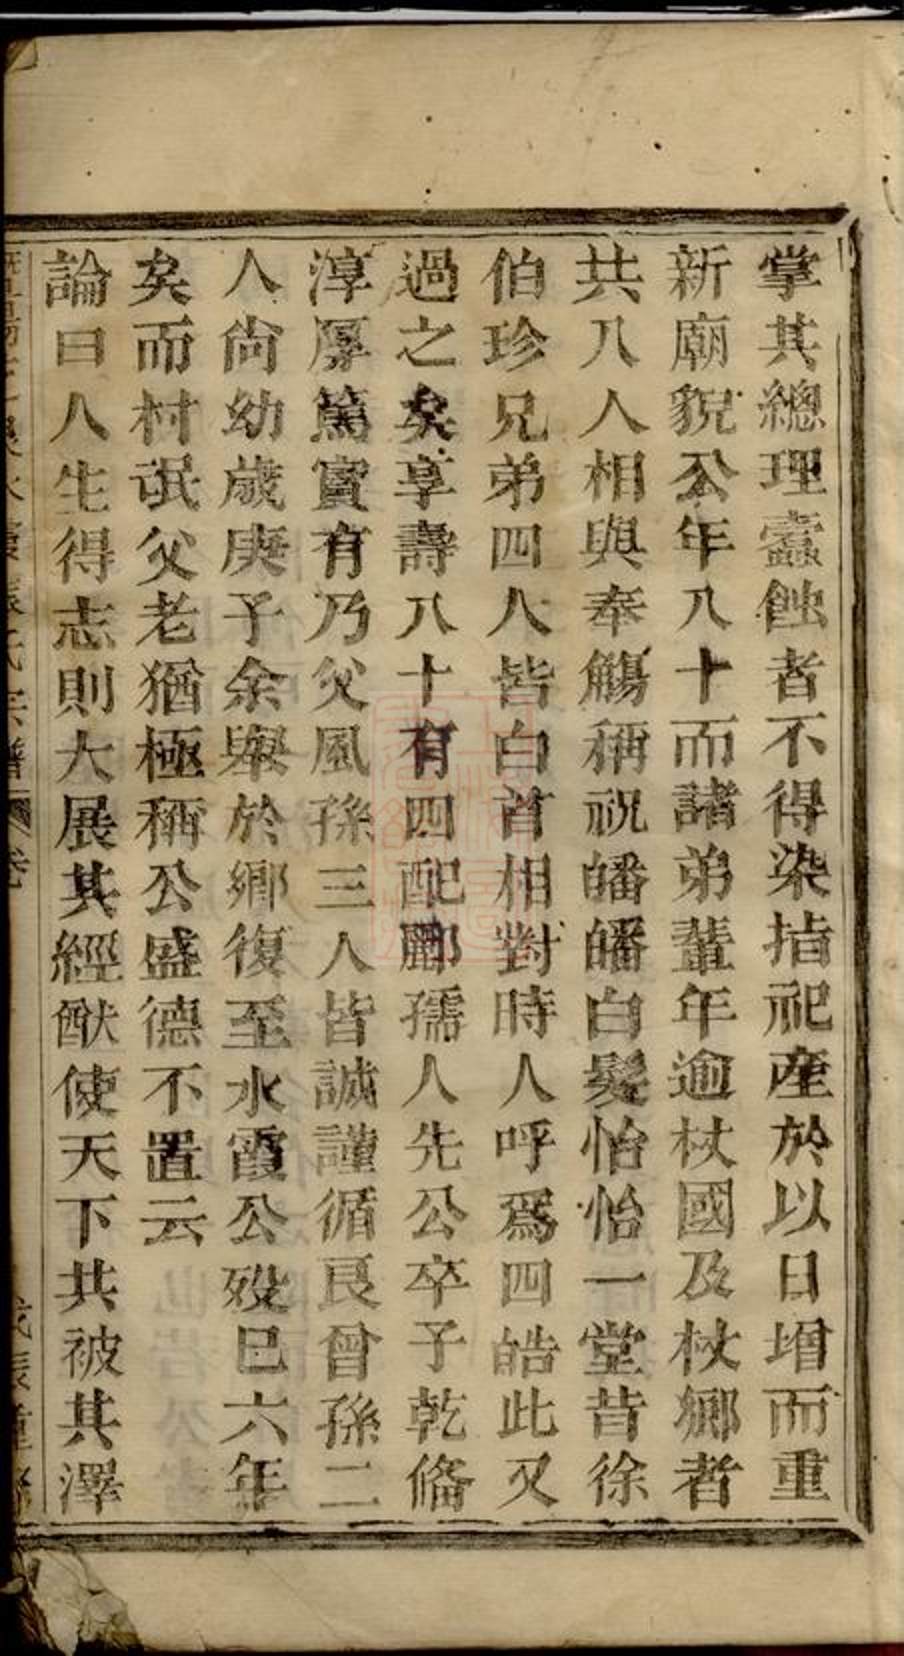 掌其總理蠹蝕者不得染指祀產於以日增而重
新廟貌公年八十而諸弟輩年逾杖國及杖鄉者
共八人相與奉觴稱祝皤皤白髮怡怡一堂昔徐
伯珍兄弟四人皆白首相對時人呼爲四皓此又
過之矣享壽八十有四配郦孺人先公卒子乾脩
淳厚篤實有乃父風孫三人皆誠謹循良曾孫二
人尙幼歲庚子余舉於鄉復至水霞公歿已六年
矣而村氓父老猶極稱公盛德不置云
論曰人生得志則大展其經猷使天下共被其澤
水霞張氏宗譜 卷
戊辰重修